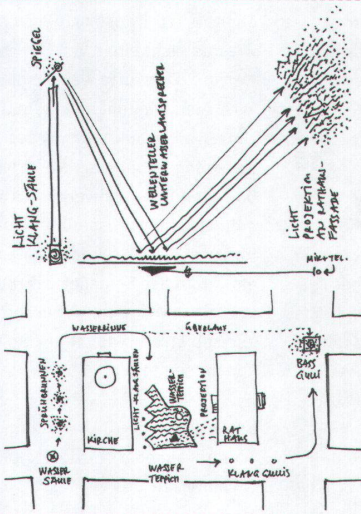 SPIEGEL
LICHT
KLANG-SÄULE
WELLENTELLER
UNTERWASSERLAUTSPRECHER
LICHT
PROJEKTION
AN RATHAUS-
FASSADE
MIK+TEL.
WASSERRINNE
ÜBERLAUF
SPRÜHBRUNNEN
KIRCHE
LICHT-KLANGSÄULEN
WASSER-
TEPPICH
PROJEKTION
RAT
HAUS
BASS
GULLI
WASSER
SÄULE
WASSER
TEPPICH
KLANGGULLIS